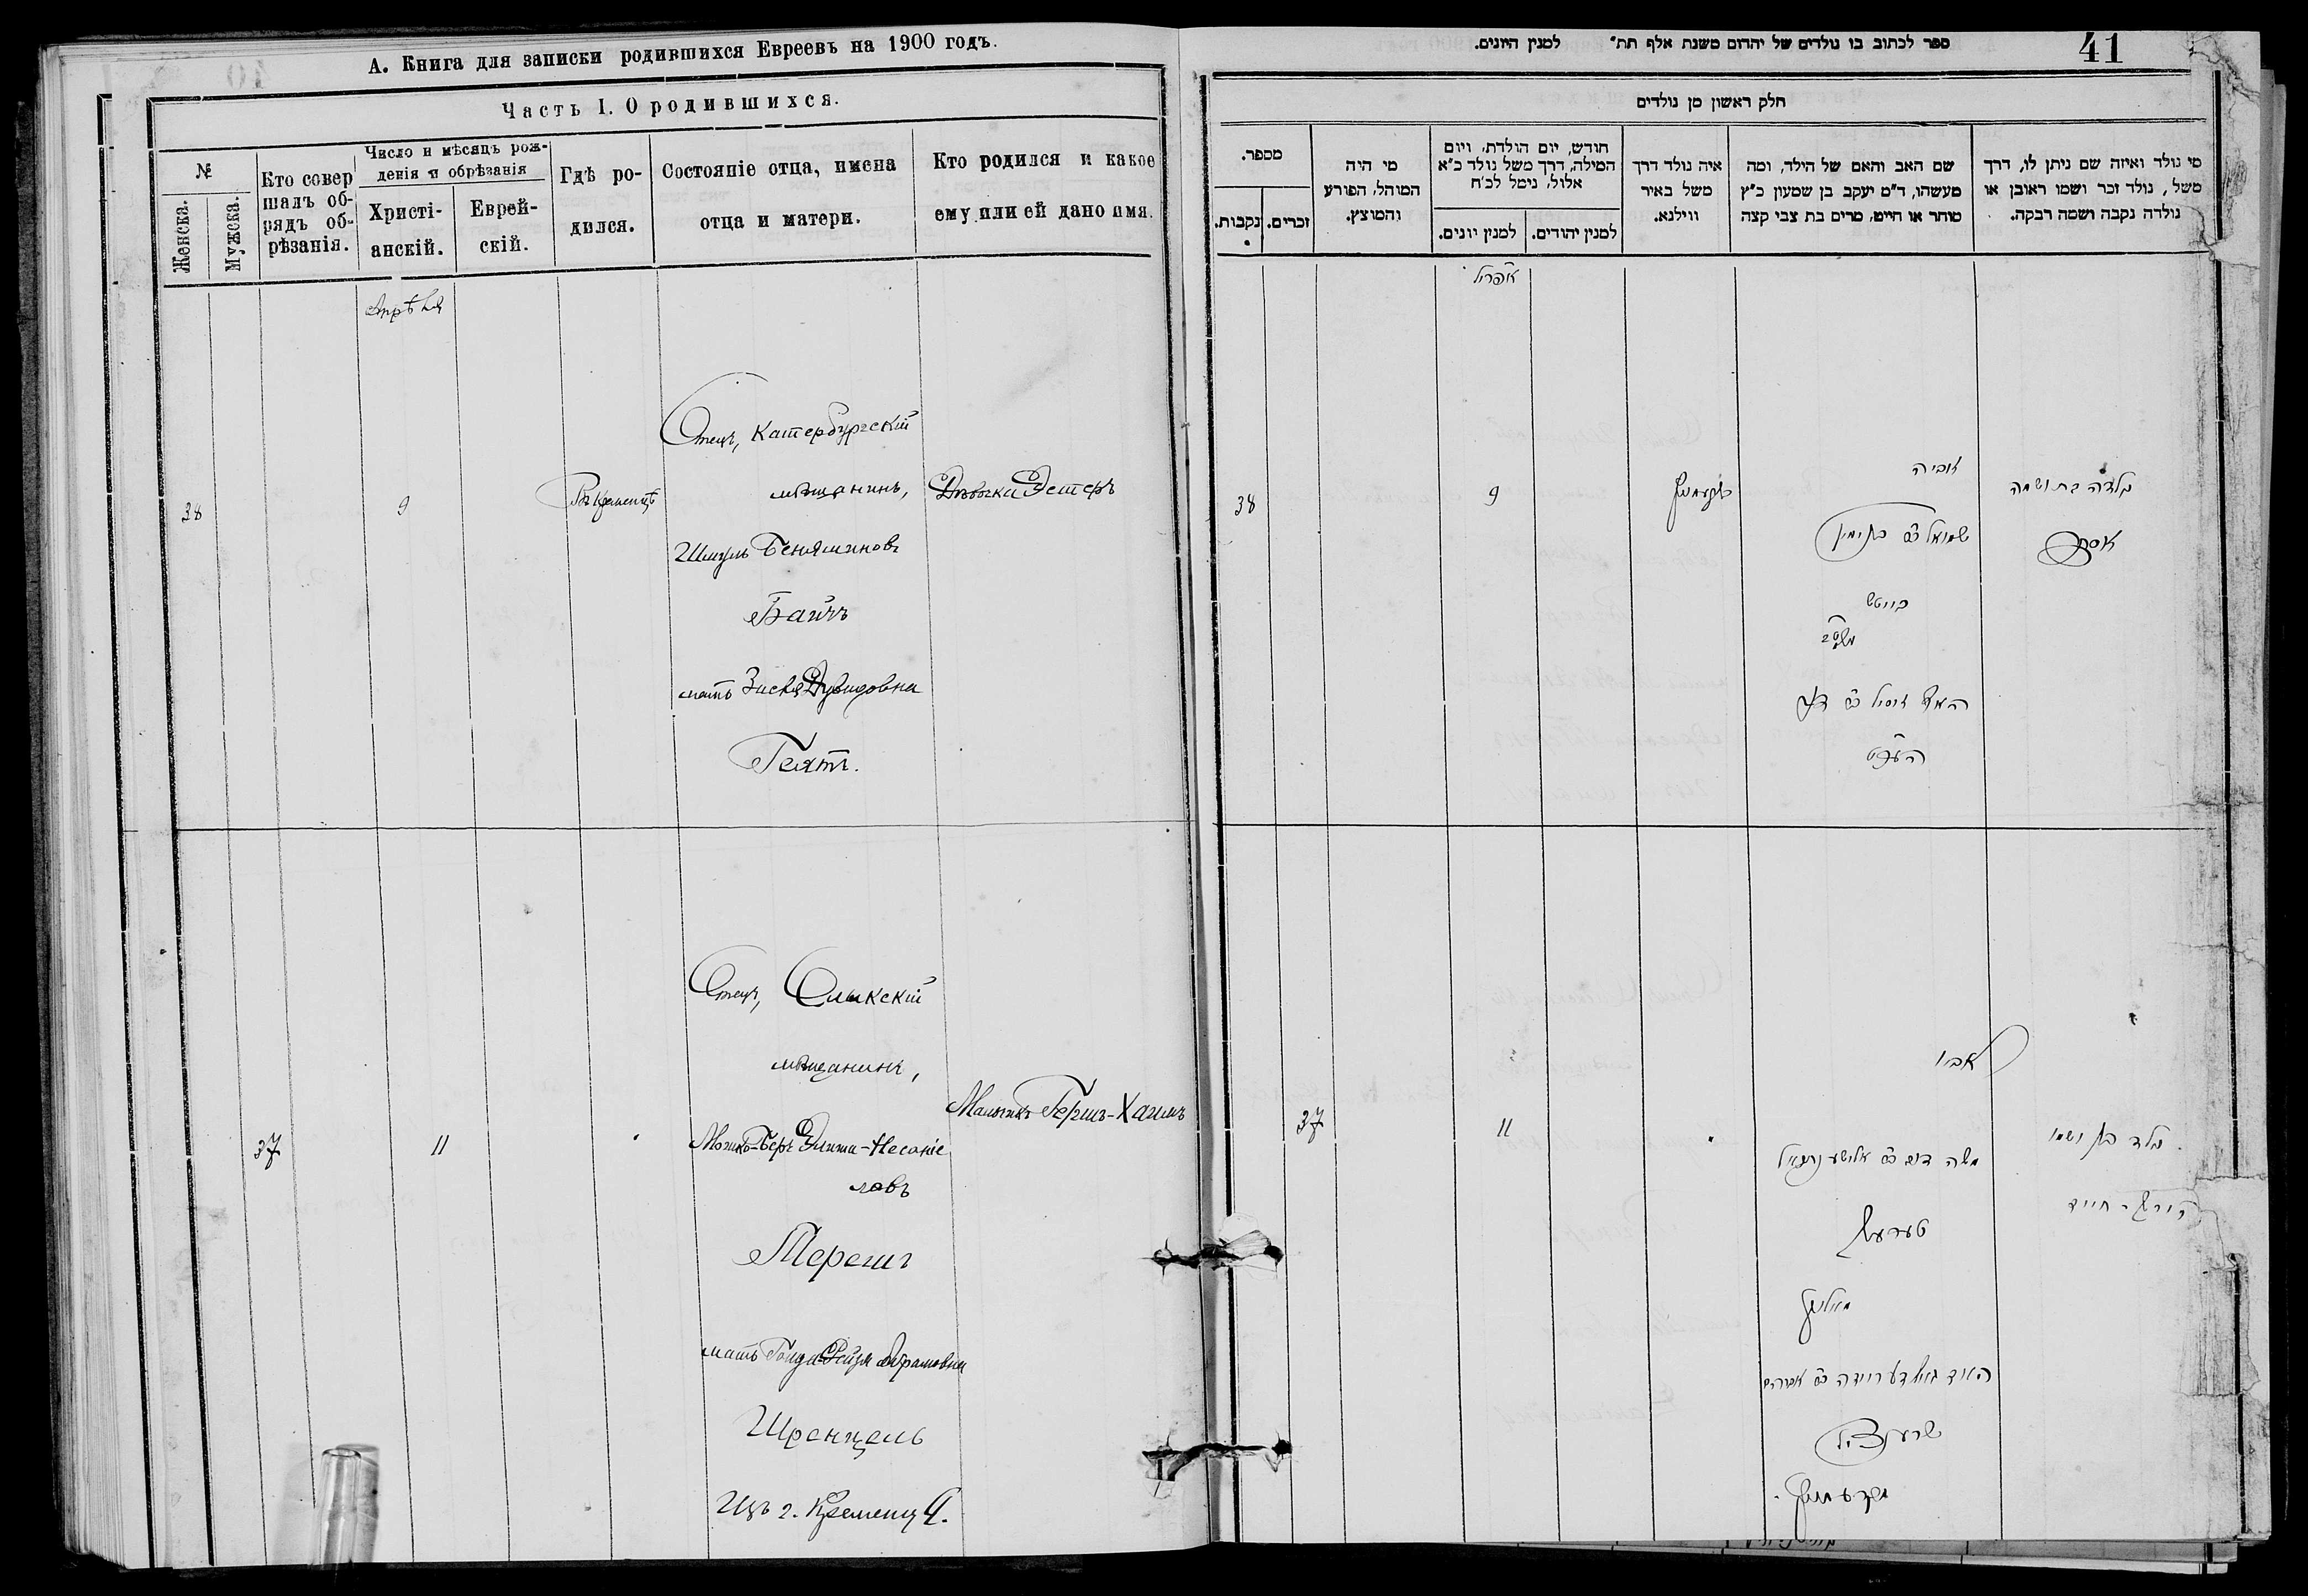 А. Книга для записки родившихся Евреевъ на 1900 годъ.
Часть I. О родившихся.
№
Женска.
Мужеска.
Кто совер
шалъ об-
рядъ об-
рѣзанія.
Число и мѣсяцъ рож-
денія и обрѣзанія
Христі-
анскій.
Еврей-
скій.
Гдѣ ро-
дился.
Состояніе отца, имена
отца и матери.
Кто родился и какое
ему или ей дано имя.
Апрѣля
38
9
Въ Кременцѣ
Отецъ, Катербургскій
мѣщанинъ,
Шмуль Беняминовъ
Байчъ
мать Зисля Дувидовна
Гехтъ.
Дѣвочка Эстеръ
37
11
Отецъ, Олыкскій
мѣщанинъ,
Мошко-Беръ Элиша-Несаніе
ловъ
Терешъ
мать Голда Рейзя Абрамовна
Шренцель
Изъ г. Кременца.
Мальчикъ Гершъ-Хаимъ
ספר לכתוב בו נולדים של יהדום משנת אלף תת״ למנין היונים.
41
חלק ראשון מן נולדים
מספר.
נקבות.
זכרים.
מי היה
המוהל, הפורע
והמוצץ.
חודש, יום הולדת, ויום
המילה, דרך משל נולד כ״א
אלול, נימל לכ״ח
למנין יונים.
למנין יהודים.
איה נולד דרך
משל באיר
ווילנא.
שם האב והאם של הילד, ומה
מעשהו, ד״מ יעקב בן שמעון כ״ץ
סוחר או חייט, מרים בת צבי קצה
מי נולד ואיזה שם ניתן לו, דרך
משל, נולד זכר ושמו ראובן או
נולדה נקבה ושמה רבקה.
אפריל
38
9
אביה
שמואל ב״ר בנימין
בייטש
נולדה בת ושמה
אסתר
37
11
אביו
משה דוב ב״ר אלישע נתנאל
טערעש
שרענציל
נולד בן ושמו
הירש - חיים